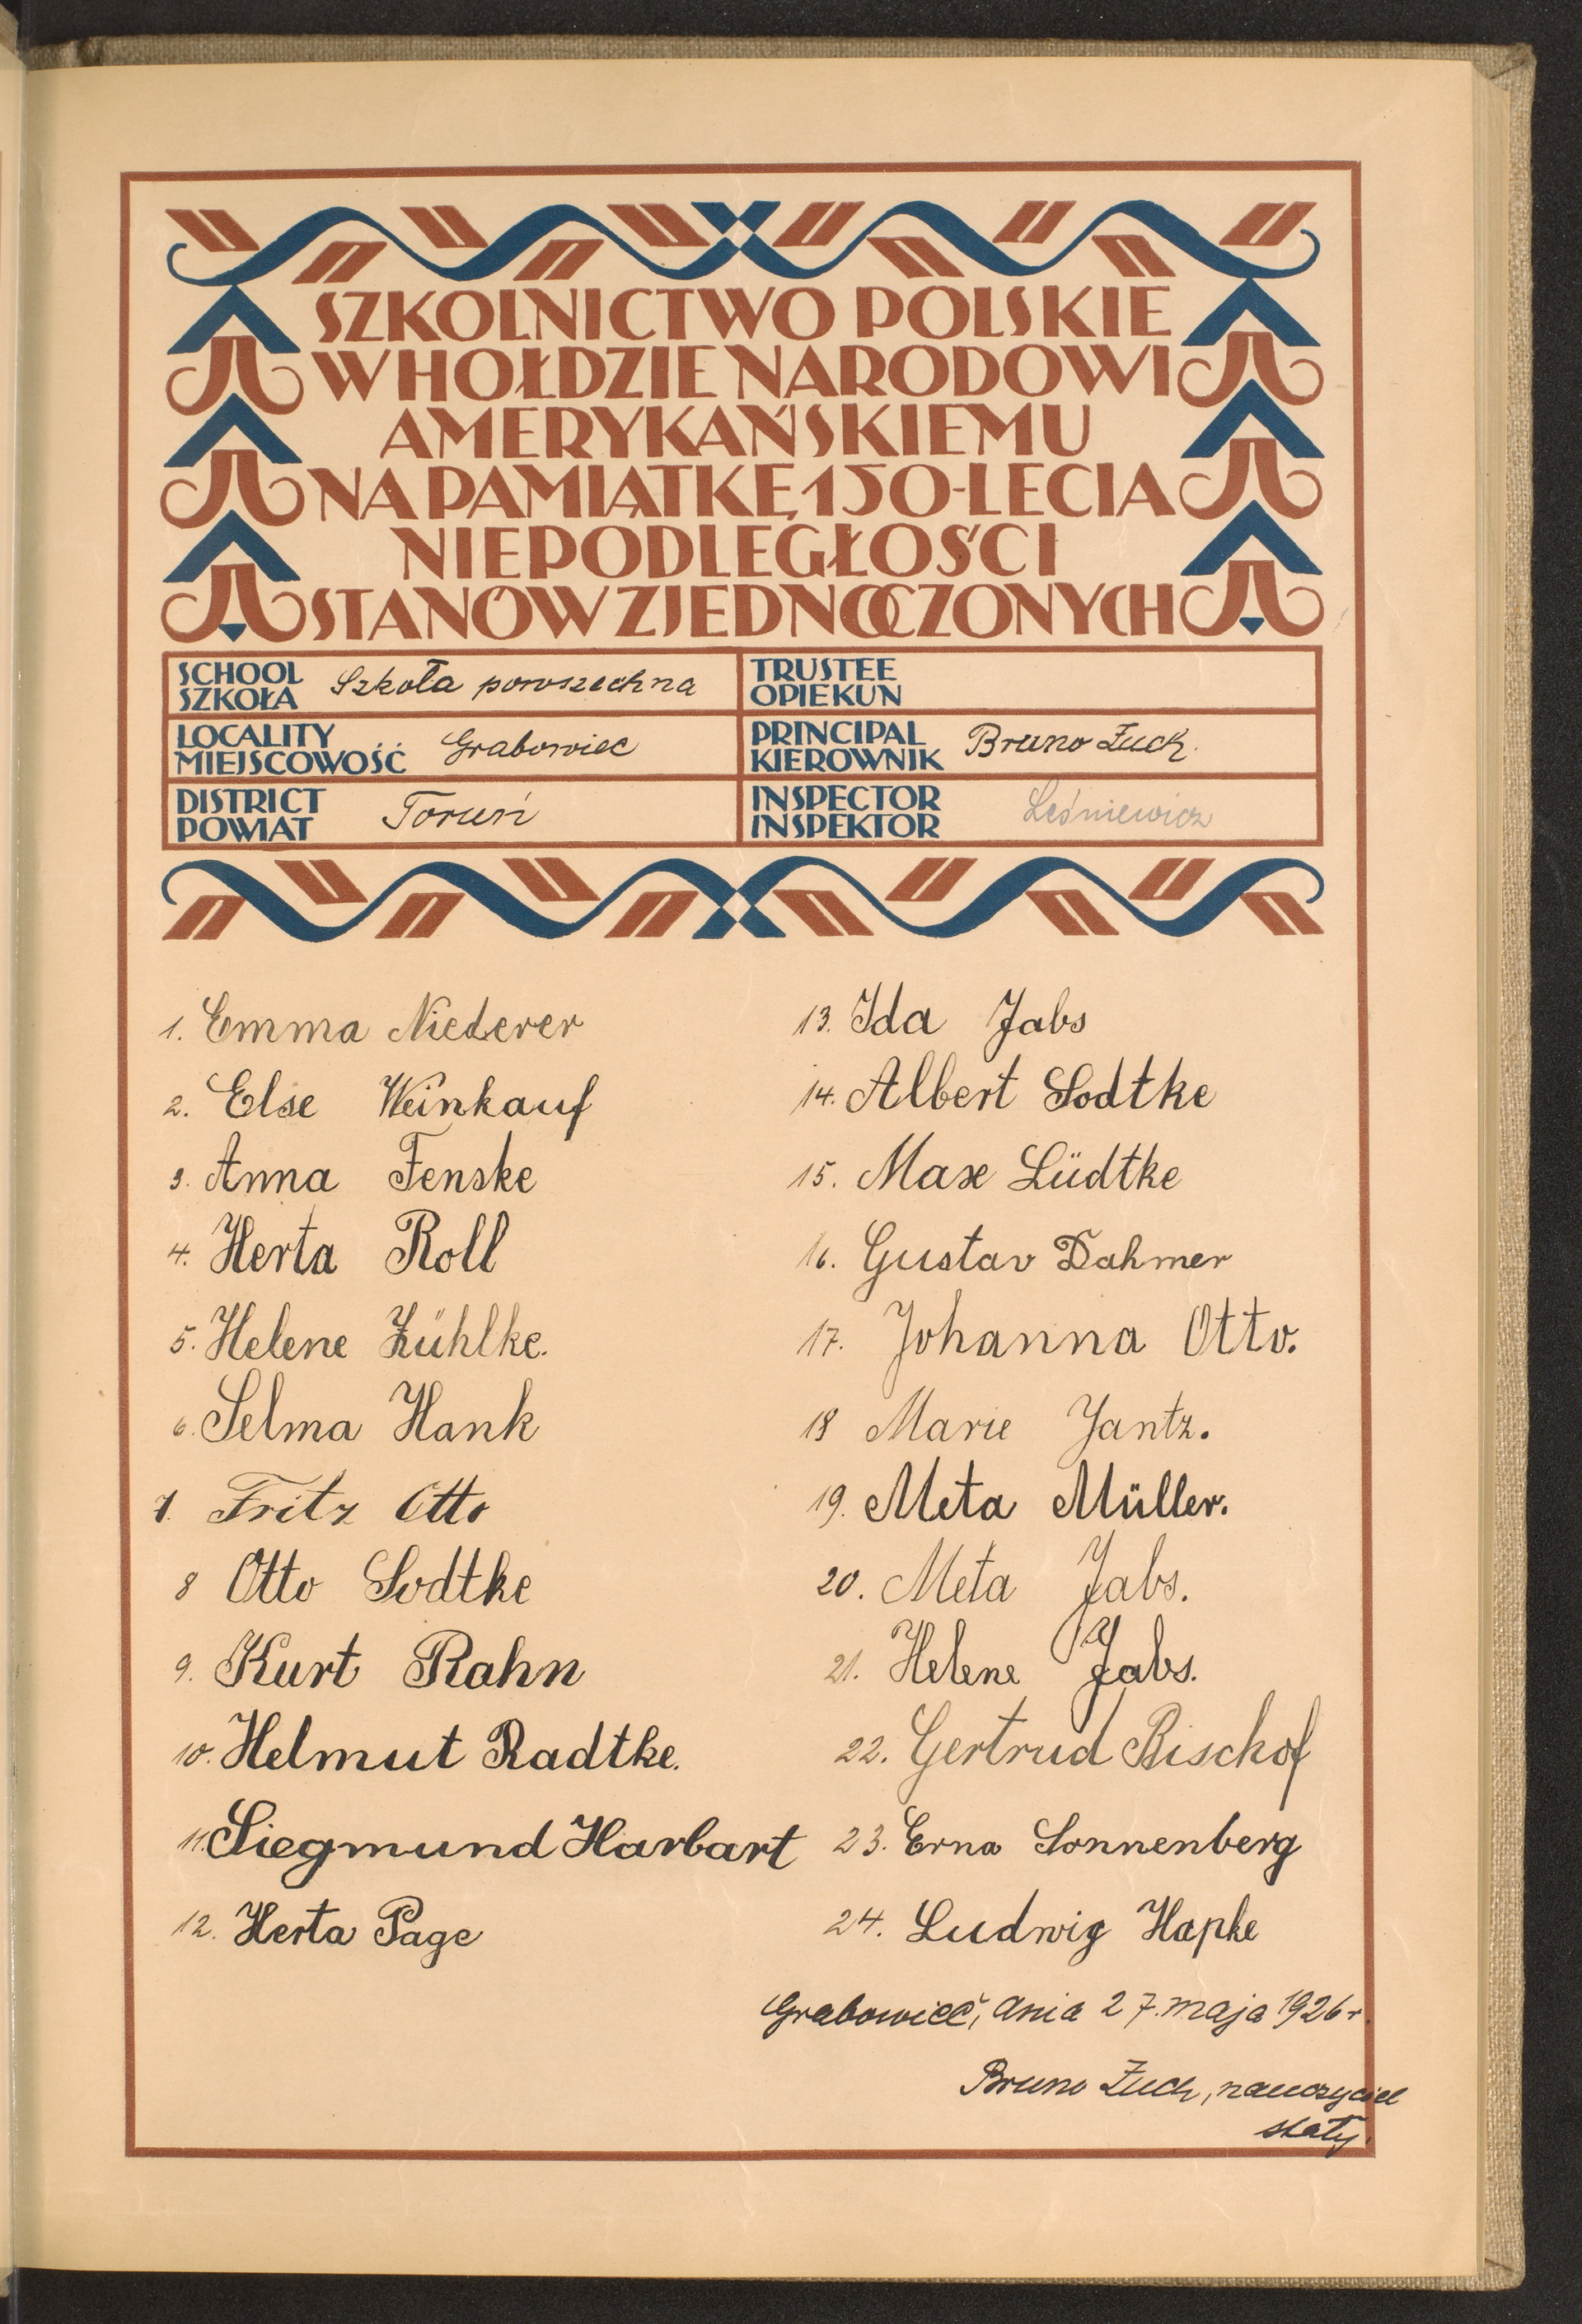 SZKOLNICTWO POLSKIE
W HOŁDZIE NARODOWI
AMERYKAŃSKIEMU
NA PAMIĄTKĘ 150-LECIA
NIEPODLEGŁOŚCI
STANÓW ZJEDNOCZONYCH
SCHOOL
SZKOŁA Szkoła powszechna
TRUSTEE
OPIEKUN
LOCALITY
MIEJSCOWOŚĆ Grabowiec
PRINCIPAL
KIEROWNIK Bruno Żuch.
DISTRICT
POWIAT Toruń
INSPECTOR
INSPEKTOR Leśniewicz
1. Emma Niederer
2. Else Weinkauf
3. Anna Fenske
4. Herta Roll
5. Helene Zühlke.
6. Selma Hank
7. Fritz Otto
8 Otto Sodtke
9. Kurt Rahn
10. Helmut Radtke.
11. Siegmund Harbart
12. Herta Page
13. Ida Jabs
14. Albert Sodtke
15. Max Lüdtke
16. Gustav Dahmer
17. Johanna Otto.
18 Marie Jantz.
19. Meta Müller.
20. Meta Jabs.
21. Helene Jabs.
22. Gertrud Bischof
23. Erna Sonnenberg
24. Ludwig Hapke
Grabowiec, dnia 27. maja 1926 r.
Bruno Żuch, nauczyciel
stały.